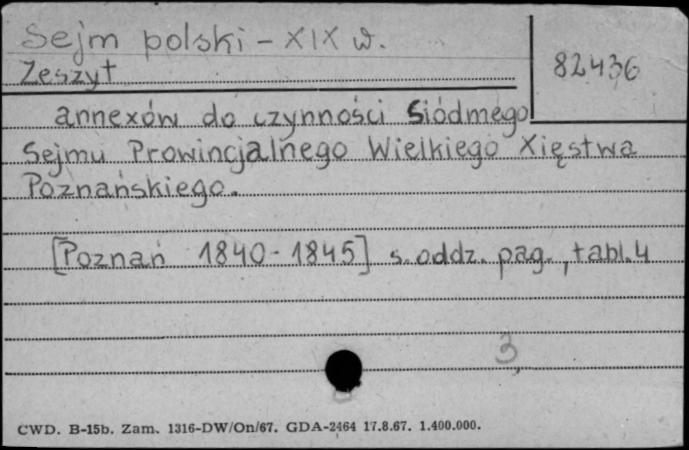 Sejm polski - XIX w.
82436
Zeszyt
annexów do czynności Siódmego
Sejmu Prowincjalnego Wielkiego Xięstwa
Poznańskiego.
[Poznań 1840-1845] s. oddz. pag., tabl. 4
3
CWD. B-15b. Zam. 1316-DW/On/67. GDA-2464 17.8.67. 1.400.000.